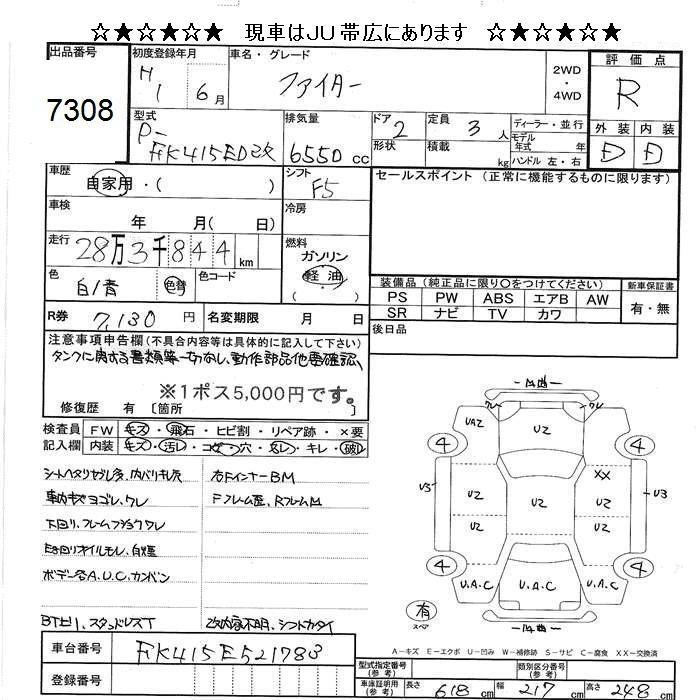 ☆★☆★☆ 現車はJU帯広にあります ☆★☆★☆
出品番号
7308
初度登録年月
H 1 6月
車名・グレード
ファイター
2WD
・
4WD
評価点
R
外装 内装
D D
型式
P-
FK415ED改
排気量
6550 cc
ドア 2
形状
定員 3 人
積載 kg
ディーラー・並行
モデル年式 年
ハンドル 左・右
車歴
自家用・( )
シフト
F5
セールスポイント (正常に機能するものに限ります)
車検
年 月( 日)
冷房
走行
28万3千844 km
燃料
ガソリン
軽油
( )
色
白/青
色替
色コード
装備品 (純正品に限り○をつけてください)
新車保証書
PS PW ABS エアB AW
SR ナビ TV カワ
有・無
R券 7,130 円
名変期限 月 日
後日品
注意事項申告欄(不具合内容等は具体的に記入して下さい)
タンクに関する書類等一切なし、動作部品他要確認、
※1ポス5,000円です。
修復歴 有 [箇所 ]
検査員記入欄
FW キズ・飛石・ヒビ割・リペア跡・×要
内装 キズ・汚レ・コゲ・穴・スレ・キレ・破レ
シートヘタリヤブレ多、内バリキレ左
車内キズヨゴレ、ワレ
下回り、フレームフショクワレ
E回りオイルモレ、白煙
ボデー各A.U.C、カンバン
BT上り、スタッドレスT
右FインナーBM
Fフレーム歪、RフレームM
改内容不明、シフトカタイ
ワレ ワレ
UAZ
UZ
4 4
XX
U3 U3
UZ UZ
UZ
UZ UZ
4 4
U.A.C U.A.C U.A.C
有
スペア
A-キズ E-エクボ U-凹み W-補修跡 S-サビ C-腐食 XX-交換済
車台番号
FK415E521783
登録番号
型式指定番号(参考)
類別区分番号(参考)
車庫証明用(参考)
長さ 618 cm
幅 217 cm
高さ 248 cm